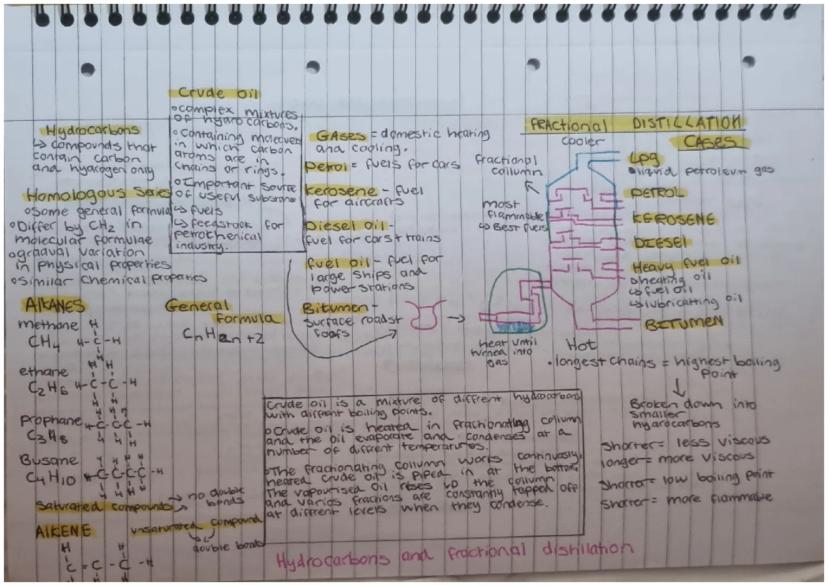 Crude oil
complex mixtures
of hydrocarbons.
containing molecules
in which carbon
atoms are in
chains or rings.
Important source
of useful substane
↳ fuels
↳ feedstock for
petrochemical
industry.
Hydrocarbons
↳ compounds that
contain carbon
and hydrogen only
Homologous Series
Same general formula
Differ by CH2 in
molecular formulae
gradual variation
in physical properties
similar chemical properties
GASES = domestic heating
and cooling.
Petrol = fuels for cars
Kerosene - fuel
for aircrafts
Diesel oil -
fuel for cars + trains
fuel oil - fuel for
large ships and
power stations
Bitumen -
surface roads +
roofs
FRACTIONAL DISTILLATION
CASES
cooler
fractional
collumn
most
flammable
↳ Best fuels
LPG
liquid petroleum gas
PETROL
KEROSENE
DIESEL
Heavy fuel oil
heating oil
↳ fuel oil
↳ lubricatting oil
BITUMEN
heat until
turned into
gas
Hot
• longest chains = highest boiling
Point
Broken down into
smaller
hydrocarbons
shorter = less viscous
longer = more viscous
shorter = low boiling point
shorter = more flammable
Alkanes
General
formula
CnH2n+2
methane
CH4
H
H-C-H
H
ethane
C2H6
H H
H-C-C-H
H H
Prophane
C3H8
H H H
H-C-C-C-H
H H H
Butane
C4H10
H H H H
H-C-C-C-C-H
H H H H
Saturated compounds → no double
bonds
AlKENE
unsaturated compound
double bonds
H H
C = C - C - H
Crude oil is a mixture of diffrent hydrocarbons
with diffrent boiling points.
Crude oil is heated in fractionating collumn
and the oil evaporate and condenses at a
number of diffrent temperatures.
The fractionating collumn works continuasly,
heared crude oil is piped in at the bottom.
The vapourised oil rises up the column
and varios fractions are constantly tapped off
at different levels when they condense.
Hydrocarbons and fractional distillation